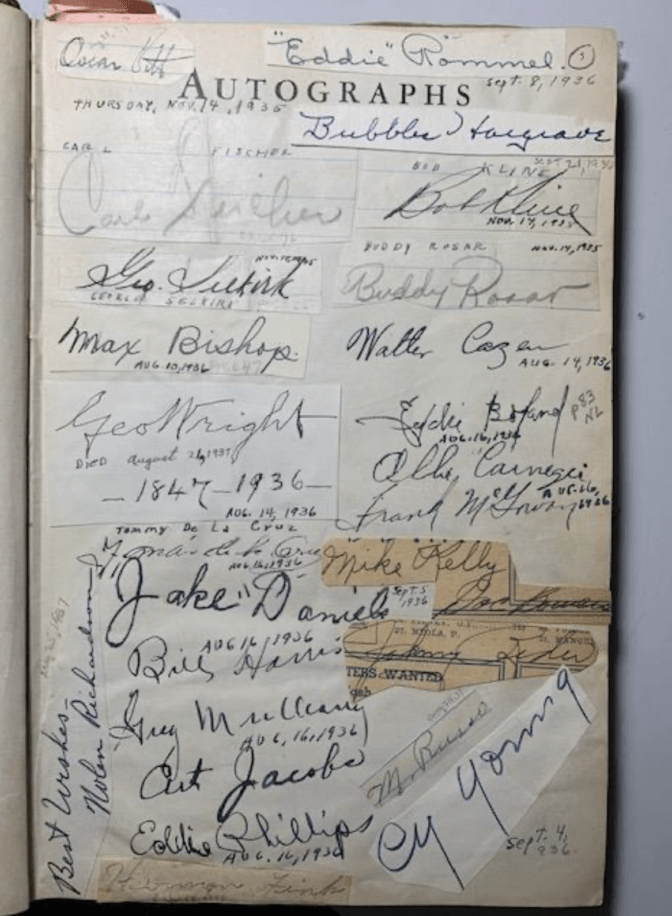 "Eddie" Rommel. 5
Sept. 8, 1936
AUTOGRAPHS
THURSDAY, NOV. 14, 1935
Bubbles Hargrave
SEPT 21, 1936
CARL FISCHER
Carl Fischer
BOB KLINE
Bob Kline
NOV. 14, 1935
BUDDY ROSAR NOV. 14, 1935
Buddy Rosar
Geo. Selkirk
GEORGE SELKIRK
Max Bishop.
AUG. 10, 1936
Walter Cazen
AUG. 14, 1936
Geo Wright
DIED August 21, 1937
— 1847 — 1936 —
AUG. 14, 1936
Eddie Boland
AUG. 16, 1936
P83
NL
Ollie Carnegie
AUG. 16, 1936
Frank McGowan
TOMMY DE LA CRUZ
AUG. 16, 1936
Mike Kelly
SEPT. 5
1936
"Jake" Daniel
AUG 16, 1936
Bill Harris
TERS WANTED
Johnny
Greg Mulleavy
AUG. 16, 1936
Art Jacobs
M. Russo
Cy Young
Sept. 4,
936.
Eddie Phillips
AUG. 16, 1936
Best Wishes -
Nolen Richardson
Herman Fink